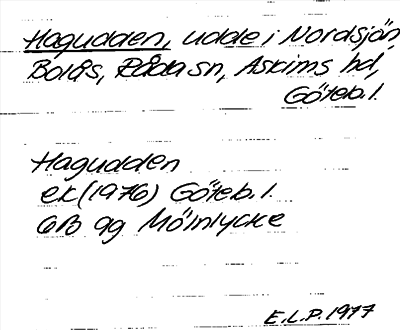 Hagudden, udde i Nordsjön,
Bolås, Råda sn, Askims hd,
Göteb. l.
Hagudden
ek (1976) Göteb. l.
6B 9g Mölnlycke
E.L.P. 1977